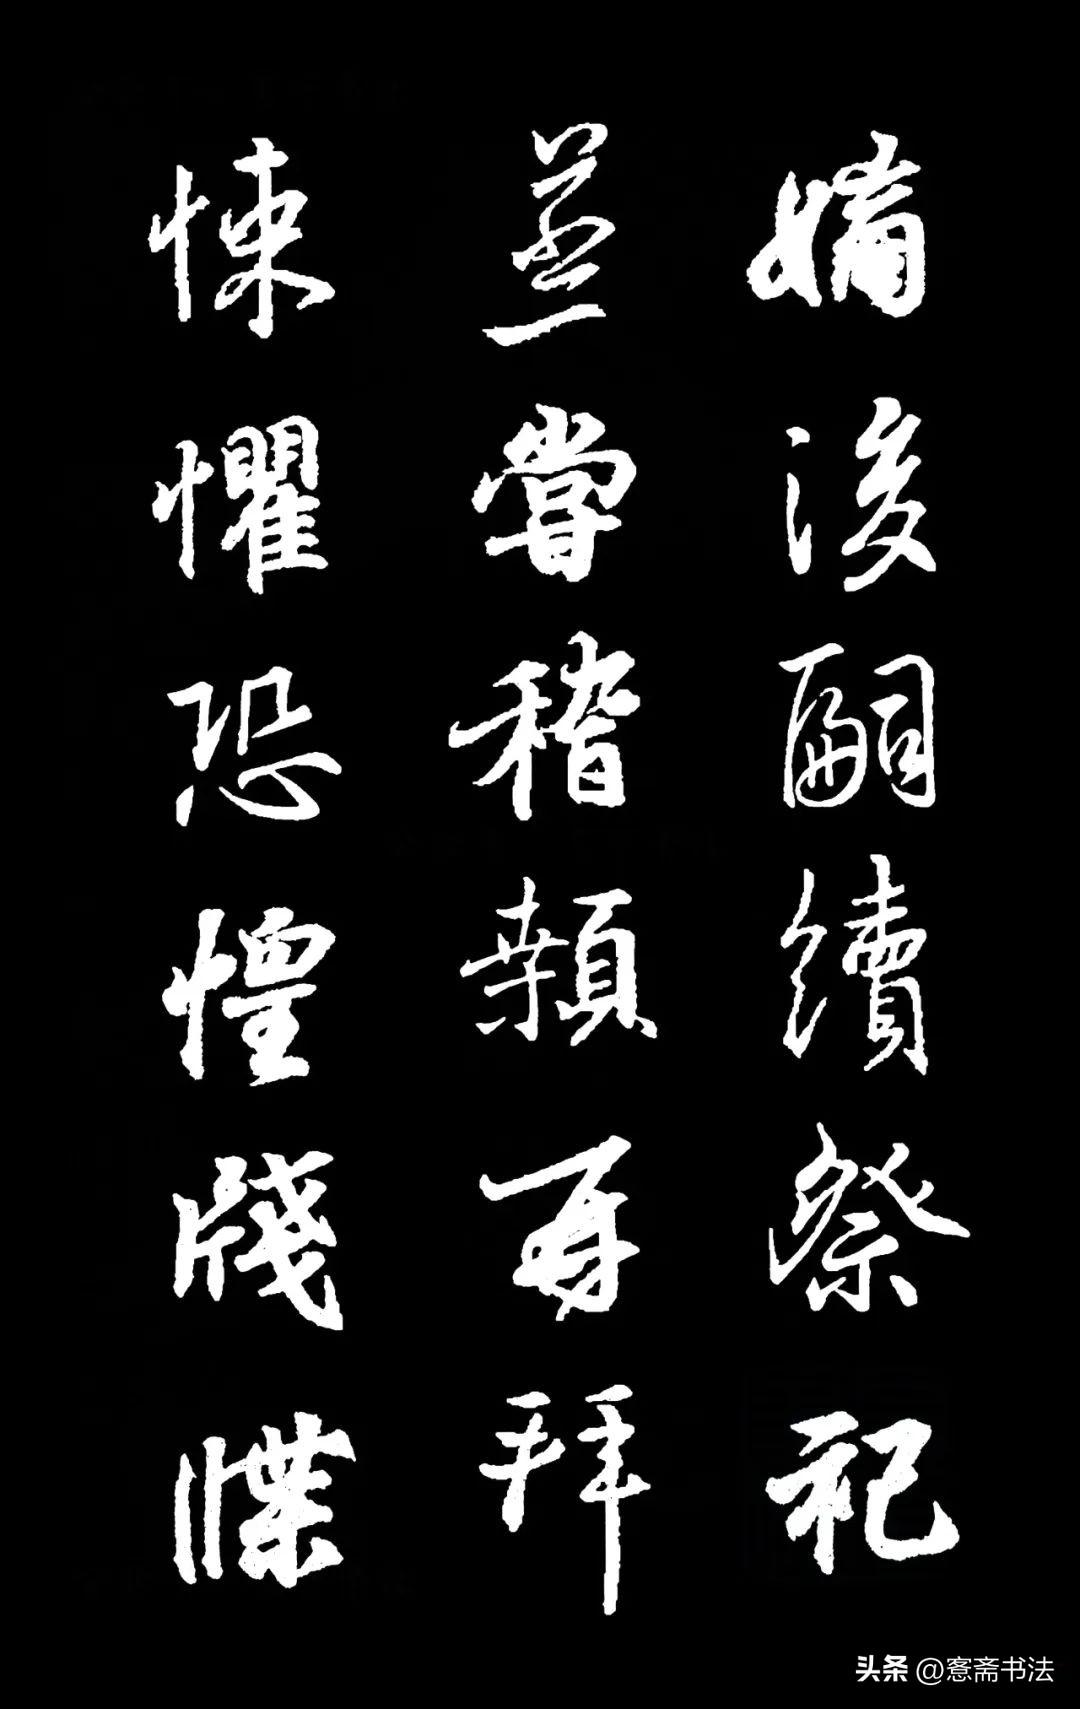 嫡後嗣續祭祀
蒸嘗稽顙再拜
悚懼恐惶牋牒
头条 @愙斋书法